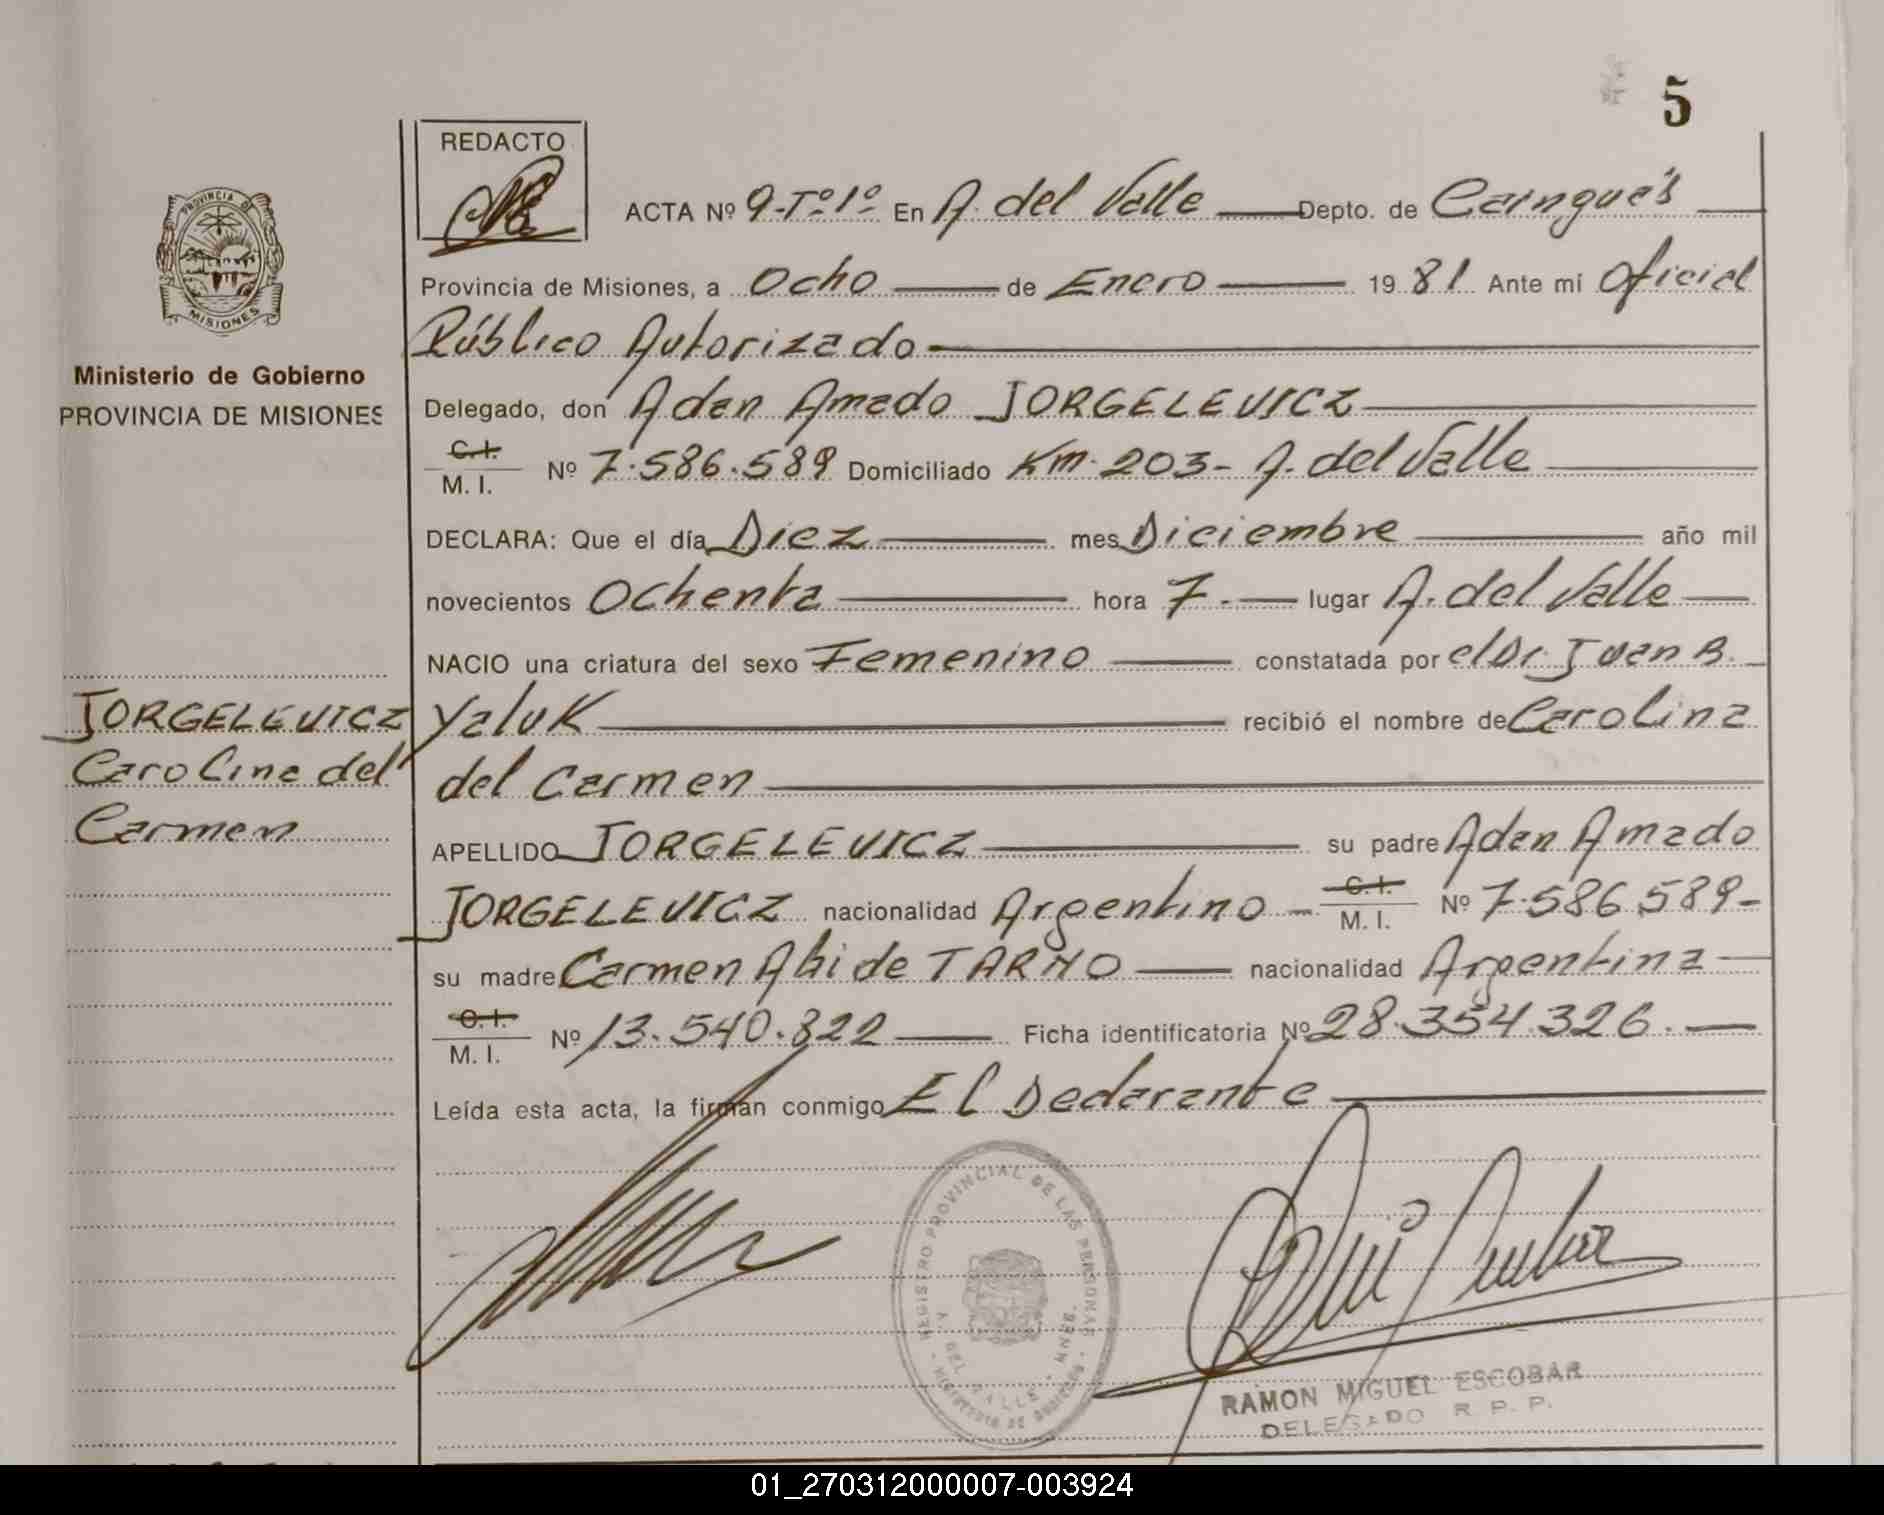 5
REDACTO
ACTA Nº 9-Tº-1º En A. del Valle Depto. de Cainguás
Provincia de Misiones, a Ocho de Enero 1981 Ante mi Oficial
Público Autorizado
Delegado, don Adan Amado JORGELEVICZ
C.I.
M. I. Nº 7.586.589 Domiciliado Km. 203- A. del Valle
DECLARA: Que el día Diez mes Diciembre año mil
novecientos Ochenta hora 7.- lugar A. del Valle
NACIO una criatura del sexo Femenino constatada por el Dr. Juan B.
Yaluk recibió el nombre de Carolina
del Carmen
APELLIDO JORGELEVICZ su padre Adan Amado
JORGELEVICZ nacionalidad Argentino C.I.
M. I. Nº 7.586.589-
su madre Carmen de TARNO nacionalidad Argentina
C.I.
M. I. Nº 13.540.822 Ficha identificatoria Nº 28.354.326.
Leída esta acta, la firman conmigo El Declarante
PROVINCIA DE
MISIONES
Ministerio de Gobierno
PROVINCIA DE MISIONES
JORGELEVICZ
Carolina del
Carmen
REGISTRO PROVINCIAL DE LAS PERSONAS
DEL VALLE
RAMON MIGUEL ESCOBAR
DELEGADO R. P. P.
01_270312000007-003924